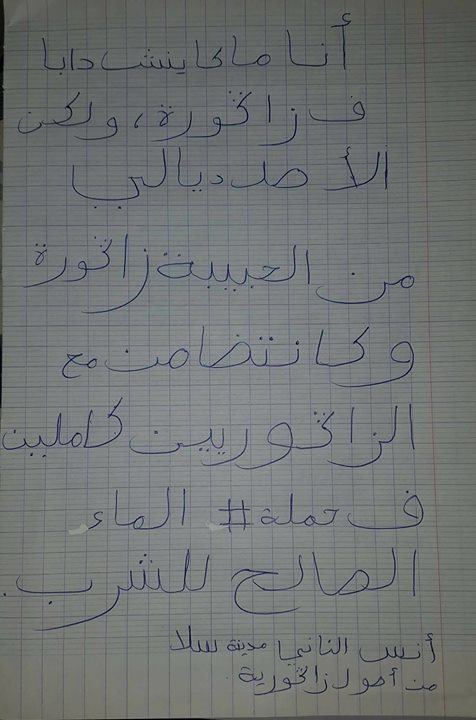 أنا ماكاينش دابا
ف زاڭورة، ولكن
الأصل ديالي
من الحبيبة زاڭورة
وكانتضامن مع
الزاڭوريين كاملين
ف حملة # الماء
الصالح للشرب.
أنس الناني مدينة سلا
من أصول زاڭورية